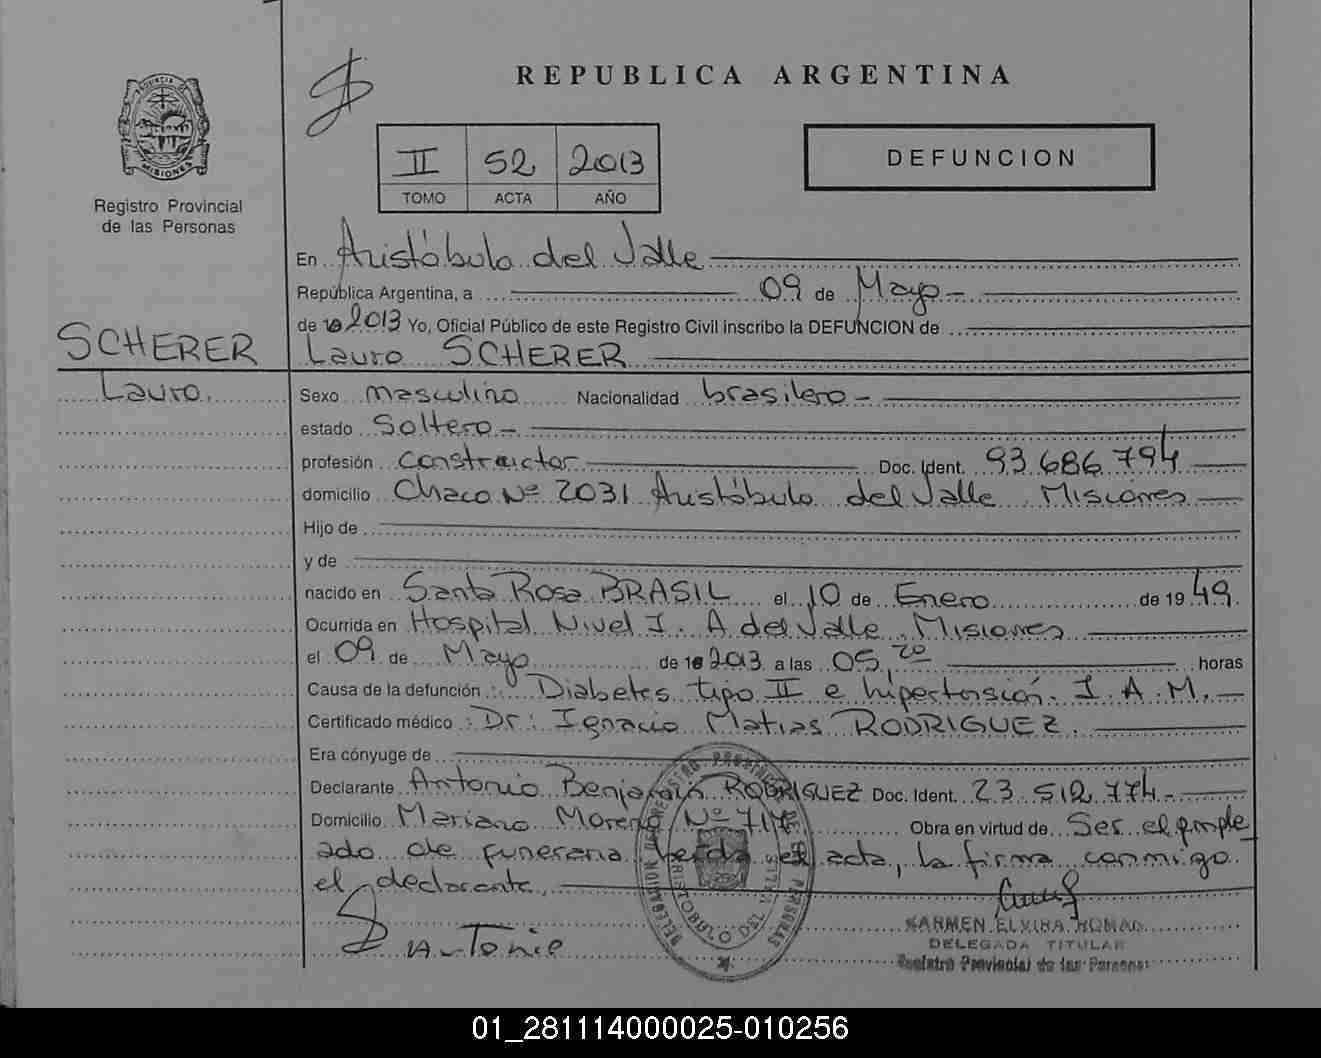 REPUBLICA ARGENTINA
PROVINCIA DE MISIONES
Registro Provincial
de las Personas
II 52 2013
TOMO ACTA AÑO
DEFUNCION
En Aristóbulo del Valle
República Argentina, a 09 de Mayo
de 2013 Yo, Oficial Público de este Registro Civil inscribo la DEFUNCION de
SCHERER Lauro SCHERER
Lauro. Sexo masculino Nacionalidad brasilero
estado Soltero
profesión constructor Doc. Ident. 93.686.794
domicilio Chaco Nº 2031 Aristóbulo del Valle Misiones
Hijo de
y de
nacido en Santa Rosa BRASIL el 10 de Enero de 1949.
Ocurrida en Hospital Nivel I. A del Valle, Misiones
el 09 de Mayo de 2013 a las 05,20 horas
Causa de la defunción: Diabetes tipo II e hipertensión. I.A.M.
Certificado médico: Dr: Ignacio Matias RODRIGUEZ.
Era cónyuge de
Declarante Antonio Benjamín RODRIGUEZ Doc. Ident. 23.512.774
Domicilio Mariano Moreno Nº Obra en virtud de Ser el emple
ado de funeraria el acta, la firma conmigo
el declarante,
Antonio
CARMEN ELVIRA ROMAN
DELEGADA TITULAR
Registro Provincial de las Personas
DELEGACION DEL REGISTRO PROVINCIAL DE LAS PERSONAS
ARISTOBULO DEL VALLE
01_281114000025-010256